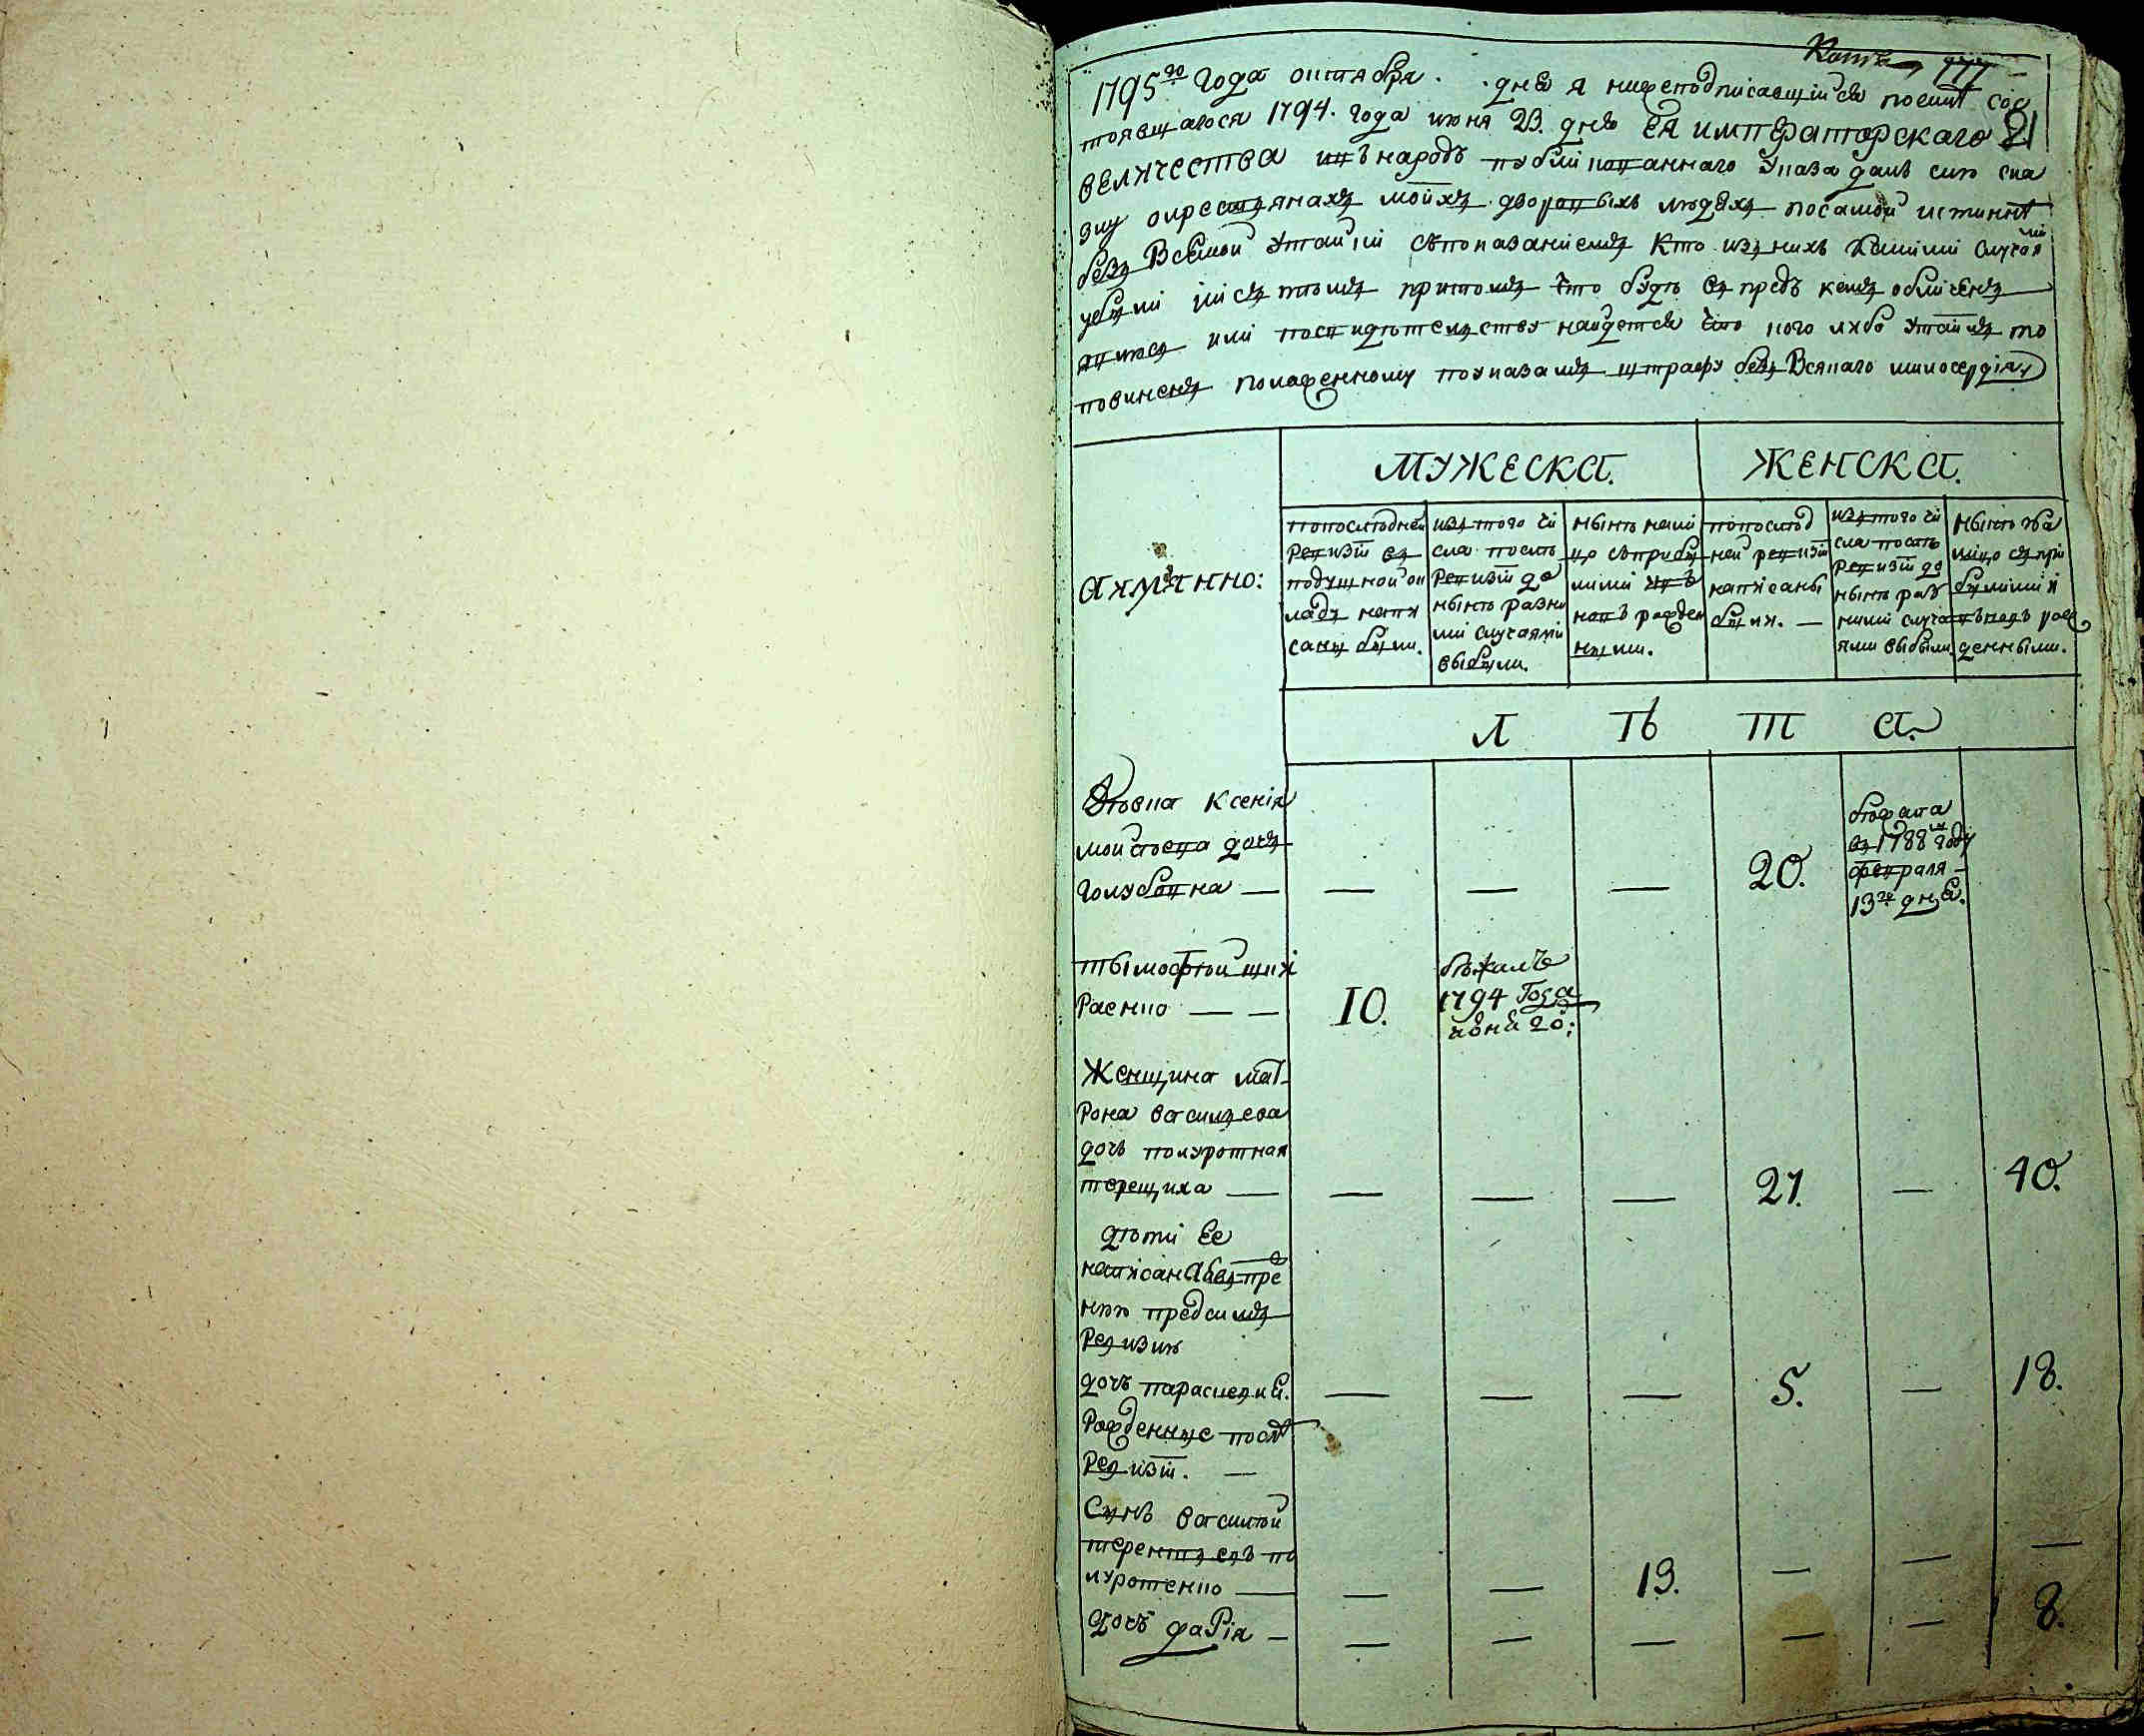 Копия 777
1795го года октября дня я нижеподписавшийся посил сос
тоявщагося 1794. года июня 23. дня ЕЯ императорскаго 21
величества въ народъ публикованнаго указа далъ сию ска
зку окрестьянахъ моихъ дворовыхъ людехъ посамой истиннѣ
безъ Всѣмой Утайки съпоказаниемъ Кто изъ нихъ Какими случая
ми
убыли притомъ что будь въ предъ кемъ обличенъ
или посвидѣтельству найдется что кого либо Утаилъ то
повиненъ положенному поуказамъ штрафу безъ Всякаго милосердія
МУЖЕСКА. ЖЕНСКА.
АИМЯННО:
попослѣдней
ревизіи въ
подушной ок
ладъ напи
саны были.
изътого чи
сла послѣ
Ревизіи до
нынѣ разны
ми случаями
выбыли.
нынѣ нали
цо съприбы
лыми и въ
новъ рожден
ными.
попослѣд
ней ревизіи
написаны
были. —
изътого чи
сла послѣ
Ревизіи до
нынѣ раз
ными случа
ями выбыли
нынѣ на
лицо съпри
былыми и
въновь рож
денными.
Л Ѣ Т А.
Дѣвка Ксенія
мойсѣева дочь
голубовна — — — — 20.
бѣжала
въ 1788м году
февраля
13го дня.
тымофѣй щи
Раенко — — 10.
бѣжалъ
1794 Года
июня 20;
Женщина мат
Рона васильева
дочь полуротная
терещиха — — — — 27. — 40.
дѣти Ее
написаныя въпре
нюю предсимъ
Ревизию
дочь параскевия. — — — 5. — 18.
Рожденные послѣ
Ревизіи. —
Сынъ василѣй
терентьевъ по
луротенко — — — 13. — — —
дочь дарія — — — — — — 8.